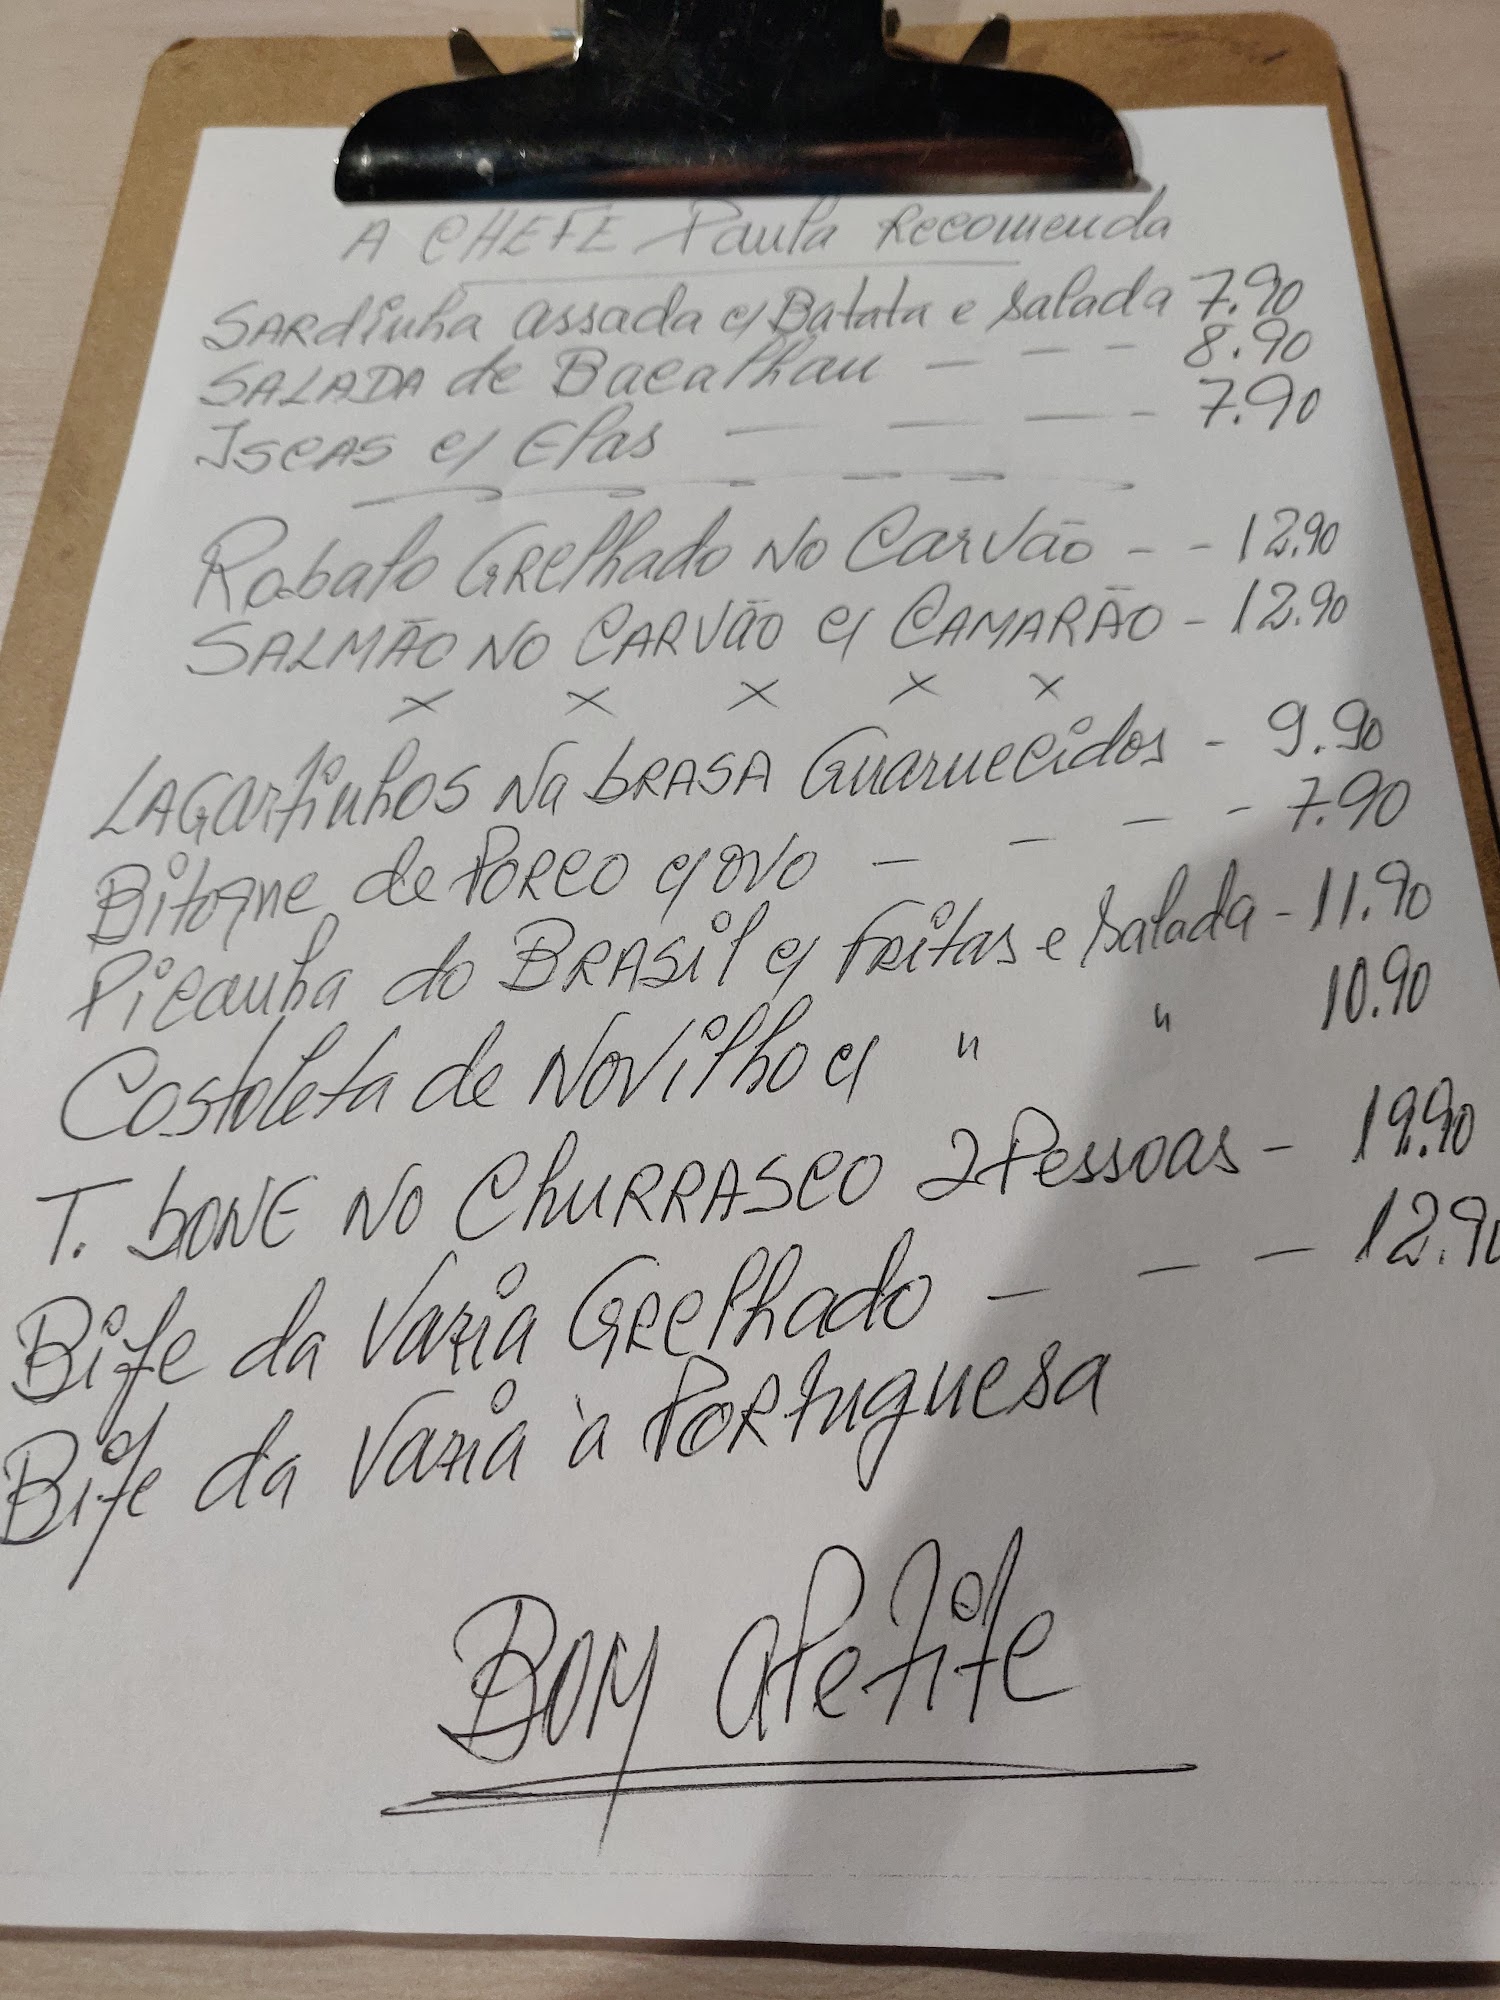 A CHEFE Paula Recomenda
SARdinha assada c/ Batata e salada 7.90
SALADA de Bacalhau - - - - 8.90
Iscas c/ Elas - - - - 7.90
Robalo GRelhado No Carvão - - 12.90
SALMÃO NO CARVão c/ CAMARÃO - 12.90
x x x x x
LAGartinhos Na bRASA Guarnecidos - 9.90
Bitoque de PORCO c/ ovo - - - - 7.90
Picanha do BRASil c/ fRitas e salada - 11.90
Costoleta de Novilho c/ " " 10.90
T. bONE NO ChURRASCO 2 Pessoas - 19.90
Bife da Vazia GRelhado - - - 12.90
Bife da Vazia à PORtuguesa
BOM aPetite